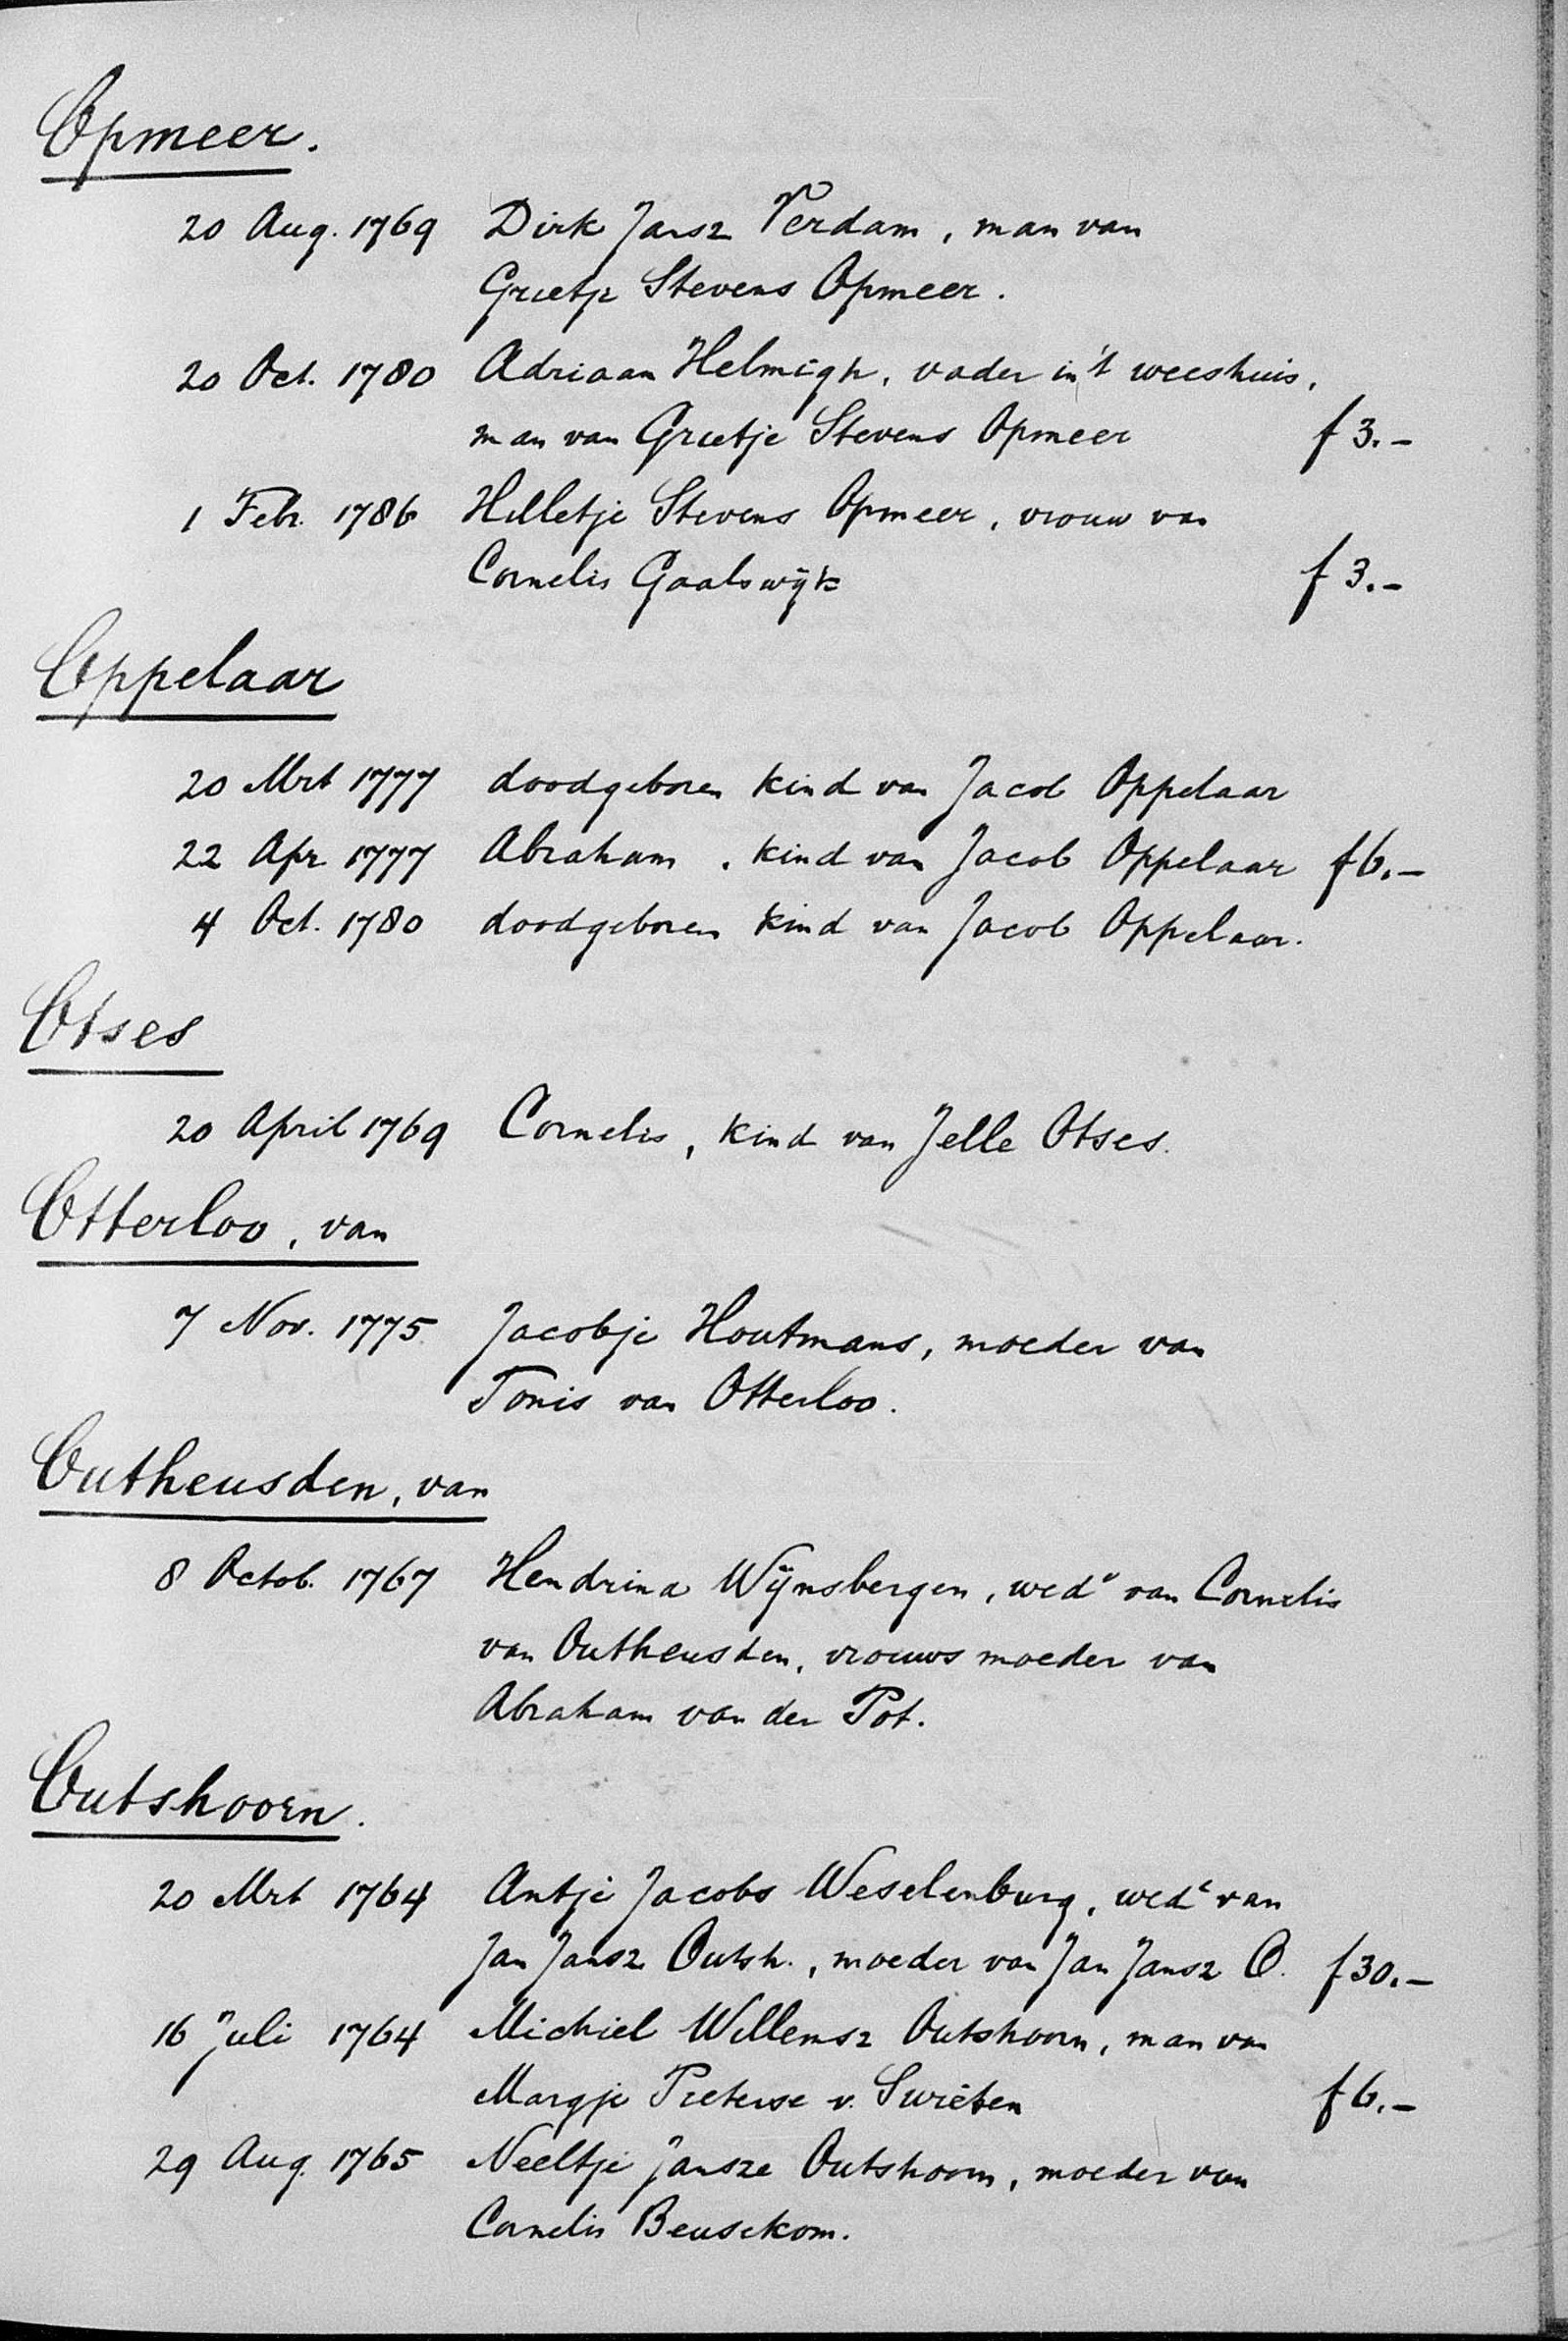 Opmeer.
20 Aug. 1769 Dirk Jansz Verdam, man van
Grietje Stevens Opmeer.
20 Oct. 1780 Adriaan Helmigh, vader in 't weeshuis,
man van Grietje Stevens Opmeer f 3.-
1 Febr. 1786 Hilletje Stevens Opmeer, vrouw van
Cornelis Gaalswijk f 3.-
Oppelaar
20 Mrt 1777 doodgeboren kind van Jacob Oppelaar
22 Apr 1777 Abraham, kind van Jacob Oppelaar f 6.-
4 Oct. 1780 doodgeboren kind van Jacob Oppelaar.
Otses
20 April 1769 Cornelis, kind van Jelle Otses.
Otterloo, van
7 Nov. 1775 Jacobje Houtmans, moeder van
Tonis van Otterloo.
Outheusden, van
8 Octob. 1767 Hendrina Wijnsbergen, wede van Cornelis
van Outheusden, vrouws moeder van
Abraham van der Pot.
Outshoorn.
20 Mrt 1764 Antje Jacobs Weselenburg, wede van
Jan Jansz Outsh., moeder van Jan Jansz O. f 30.-
16 Juli 1764 Michiel Willemsz Outshoorn, man van
Margje Pieterse v. Swieten f 6.-
29 Aug. 1765 Neeltje Jansze Outshoorn, moeder van
Cornelis Beusekom.